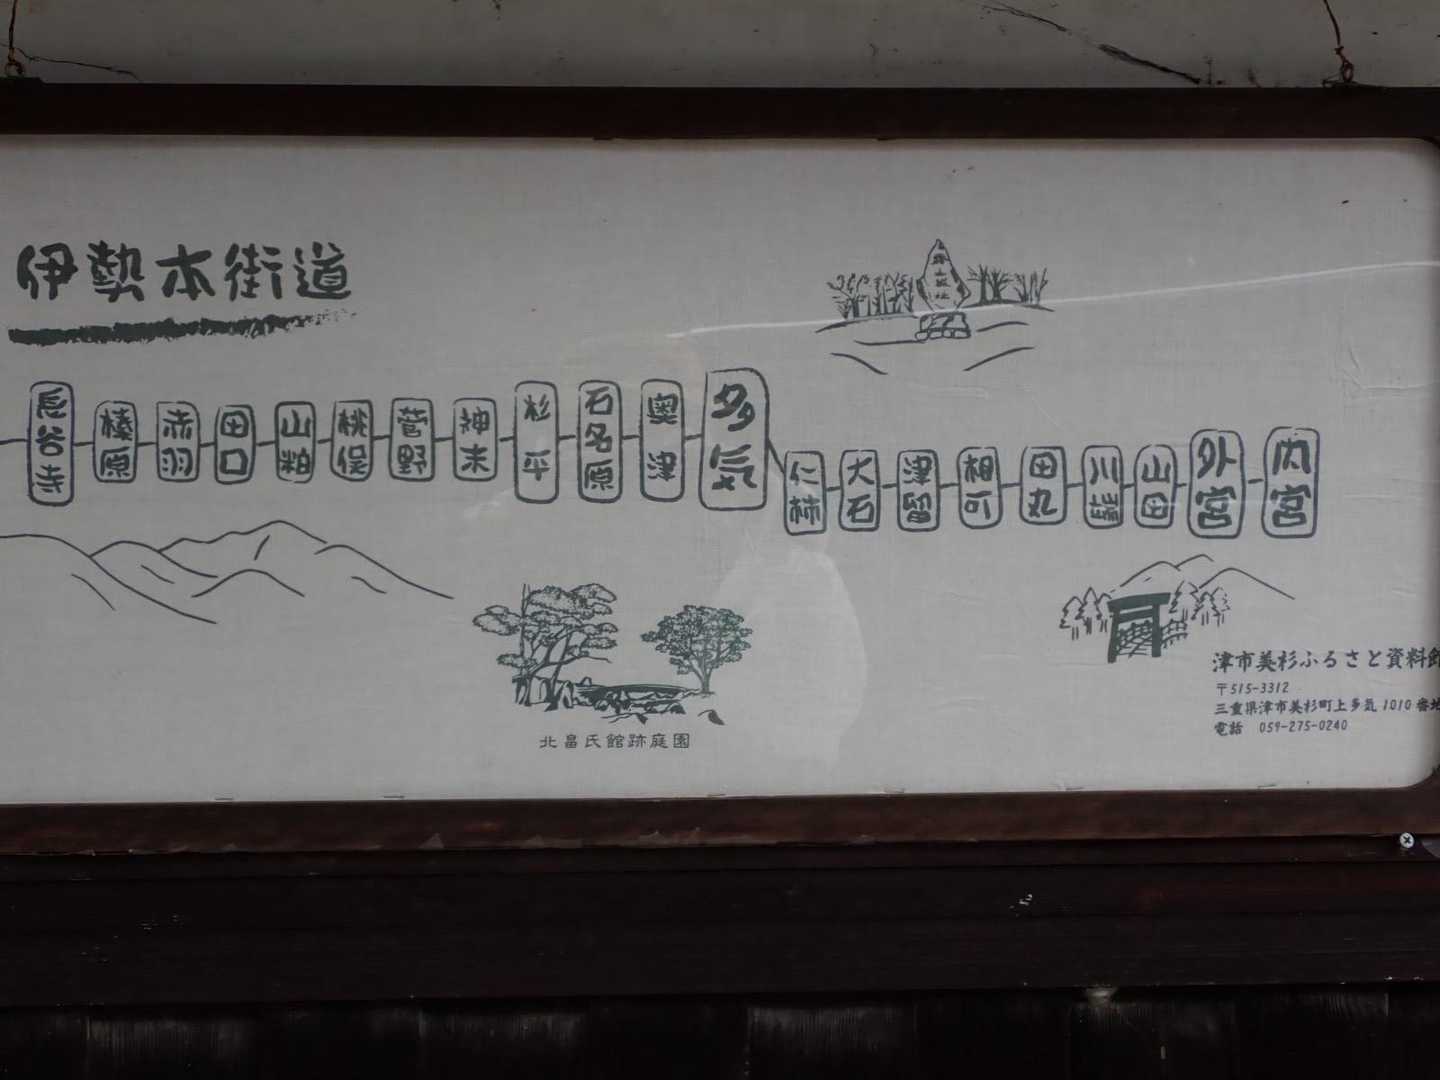 伊勢本街道
長谷寺
榛原
赤羽
田口
山粕
桃俣
菅野
神末
杉平
石名原
奥津
多気
仁柿
大石
津留
相可
田丸
川端
山田
外宮
内宮
北畠氏館跡庭園
津市美杉ふるさと資料館
〒515-3312
三重県津市美杉町上多気1010番地
電話 059-275-0240